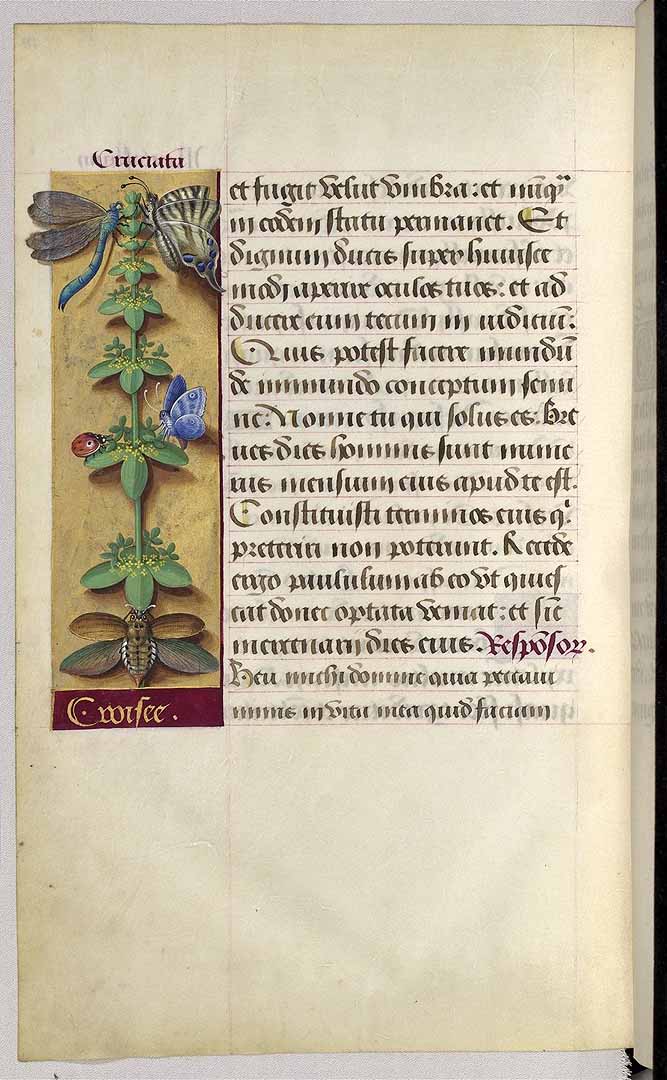 Cruciata
et fugit velut vmbra: et nūqᷓ
in eodem statu permanet. Et
dignum ducis super huiusce
modi aperire oculos tuos: et ad
ducere eum tecum in iudiciū:
Quis potest facere mundū
de immundo conceptum semi
ne: Nonne tu qui solus es: Bre
ues dies hominis sunt nume
rus mensium eius apud te est.
Constituisti terminos eius q̄
preteriri non poterunt. Recede
ergo paululum ab eo vt quies
cat donec optata veniat: et sic̄
mercenarij dies eius. Respōsor.
Heu michi domine quia peccaui
nimis in vita mea quid faciam
Croisee.